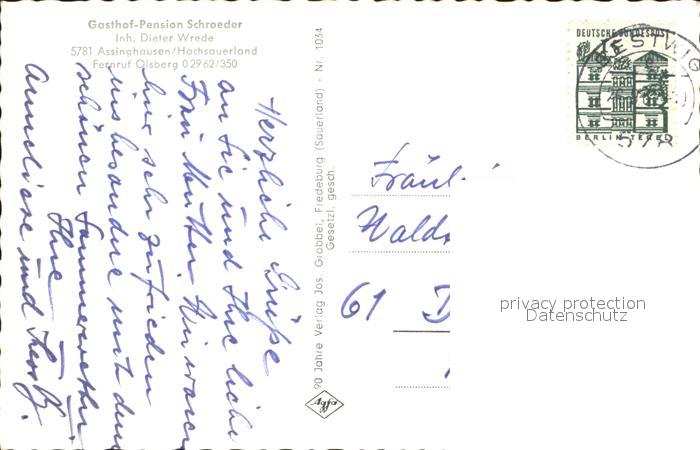 Gasthof-Pension Schroeder
Inh. Dieter Wrede
5781 Assinghausen/Hochsauerland
Fernruf Olsberg 0 29 62/350
Herzliche Grüße
an Sie und Ihre liebe
Frau Mutter. Wir waren
hier sehr zufrieden
insbesondere mit dem
schönen Sommerwetter.
Ihre
Anneliese und
90 Jahre Verlag Jos. Grobbel, Fredeburg (Sauerland) · Nr. 1034
Gesetzl. gesch.
Agfa
DEUTSCHE BUNDESPOST
BERLIN-TEGEL
BESTWIG
578
Fräul.
Wald
61 D
privacy protection
Datenschutz